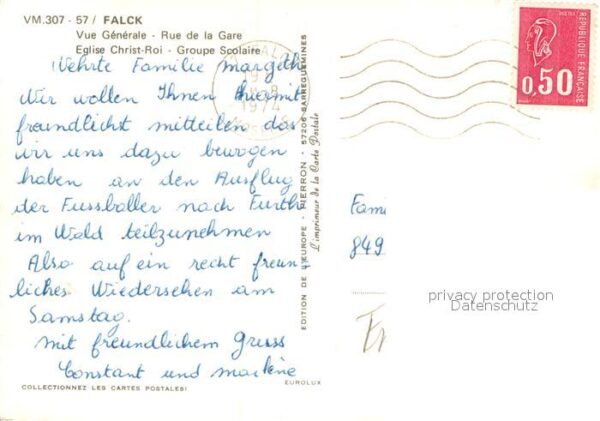 VM.307 - 57 / FALCK
Vue Générale - Rue de la Gare
Eglise Christ-Roi - Groupe Scolaire
Wehrte Familie Margeth
Wir wollen Ihnen hiermit
freundlichst mitteilen das
wir uns dazu bewogen
haben an den Ausflug
der Fussballer nach Furth
im Wald teilzunehmen
Also auf ein recht freun-
liches Wiedersehen am
Samstag.
mit freundlichem Gruss
Constant und marlène
COLLECTIONNEZ LES CARTES POSTALES!
EUROLUX
EDITION DE L'EUROPE - PIERRON - 57206 SARREGUEMINES
L'imprimeur de la Carte Postale
1974
REPUBLIQUE FRANÇAISE
POSTES
0,50
Fami
849
privacy protection
Datenschutz